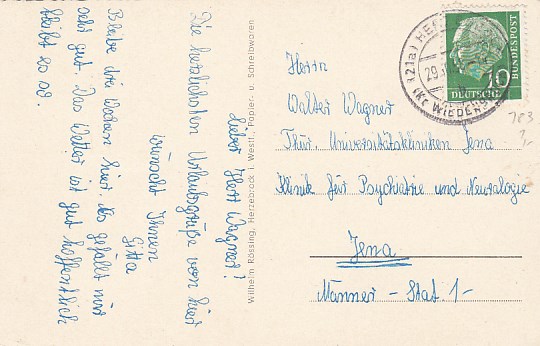 Lieber Herr Wagner!
Die herzlichsten Urlaubsgrüße von hier
wünscht Ihnen
Gitta
Bleibe drei Wochen hier. Es gefällt mir
sehr gut. Das Wetter ist gut hoffentlich
bleibt es so.
Wilhelm Rössing, Herzebrock i. Westf., Papier- u. Schreibwaren
(21a) HE
29.
(Kr WIEDENB
DEUTSCHE
BUNDESPOST
10
Herrn
Walter Wagner
Thür. Universitätskliniken Jena
Klinik für Psychiatrie und Neurologie
Jena
Männer - Stat 1-